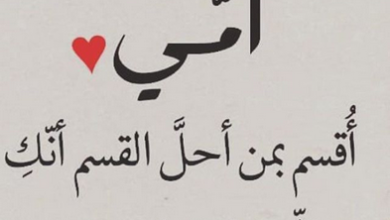 أمّي
أُقسم بمن أحلَّ القسم أنّكِ